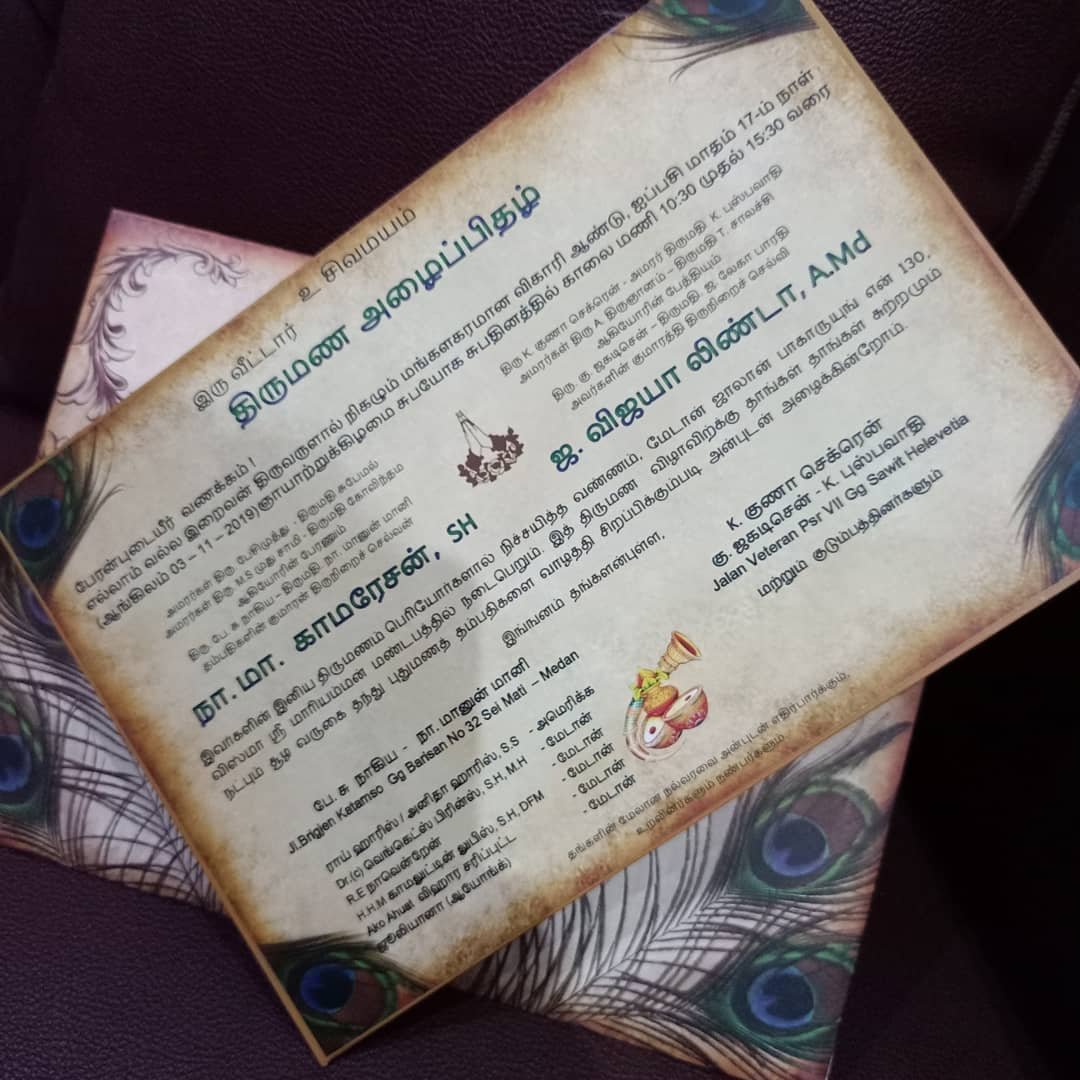 உ சிவமயம்
இரு வீட்டார்
திருமண அழைப்பிதழ்
பேரன்புடையீர் வணக்கம் !
எல்லாம் வல்ல இறைவன் திருவருளால் நிகழும் மங்களகரமான விகாரி ஆண்டு, ஐப்பசி மாதம் 17-ம் நாள்
(ஆங்கிலம் 03 – 11 – 2019) ஞாயாற்றுக்கிழமை சுபயோக சுபதினத்தில் காலை மணி 10:30 முதல் 15:30 வரை
அமரர்கள் திரு பேசிமுத்து - திருமதி சுபேமல்
அமரர்கள் திரு. M.S முது சாமி - திருமதி கோவிந்தம
ஆதியோரின் பேரனும்
திரு. பே. சு நாதிய - திருமதி. நா. மானுன் மானி
தம்பதிகளின் குமாரன் திருநிறைச் செல்வன்
நா. மா. காமரேசன், SH
திரு K. குணா செக்ரென் - அமரர் திருமதி K. புஸ்பவாதி
அமரர்கள் திரு A. திருஞானம் – திருமதி T. சாலச்சி
ஆதியோரின் பேத்தியும்
திரு. கு. ஜகடிசென் – திருமதி. ஜ. லேகா பாரதி
அவர்களின் குமாரத்தி திருநிறைச் செல்வி
ஜ. விஜயா லிண்டா, A.Md
இவர்களின் இனிய திருமணம் பெரியோர்களால் நிச்சயித்த வண்ணம், மேடான் ஜாலான் பாகாருயுங் என் 130,
விஸ்மா ஸ்ரீ மாரியம்மன் மண்டபத்தில் நடைபெறும். இத் திருமண விழாவிற்க்கு தாங்கள் தாங்கள் சுற்றமும்
நட்பும் சூழ வருகை தந்து புதுமணத் தம்பதிகளை வாழ்த்தி சிறப்பிக்கும்படி அன்புடன் அழைக்கின்றோம்.
இங்ஙனம் தங்களன்புள்ள,
பே. சு நாதிய - நா. மானுன் மானி
Jl.Brigjen Katamso Gg Barisan No 32 Sei Mati – Medan
K. குணா செக்ரென்
கு. ஜகடிசென் - K. புஸ்பவாதி
Jalan Veteran Psr VII Gg Sawit Helevetia
மற்றும் குடும்பத்தினர்களும்
ராய் ஹாரிஸ் / அனிதா ஹாரிஸ், S.S - அமெரிக்க
Dr.(c) வெங்கெட்ஸ் பிரின்ஸ், S.H, M.H - மேடான்
R.E நாவென்றேன் - மேடான்
H.H.M காமலுட்டின் லுபிஸ், S.H, DFM - மேடான்
Ako Ahuat விஹார சரிப்புட்ட - மேடான்
ஜூலியானா (ஆயோங்க்)
தங்களின் மேலான நல்வரவை அன்புடன் எதிர்பார்க்கும்,
உறவினர்களும் நண்பர்களும்